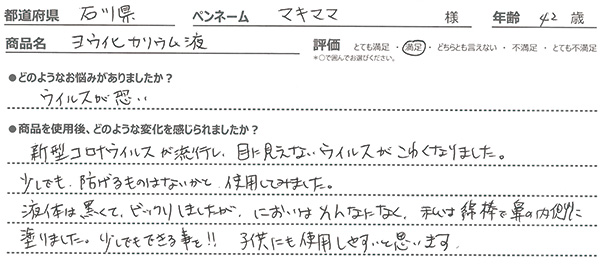 都道府県 石川県 ペンネーム マキママ 様 年齢 42 歳
商品名 ヨウ化カリウム液 評価 とても満足 ・ 満足 ・ どちらとも言えない ・ 不満足 ・ とても不満足
*○で囲んでお選びください。
●どのようなお悩みがありましたか?
ウイルスが恐い
●商品を使用後、どのような変化を感じられましたか?
新型コロナウイルスが流行し、目に見えないウイルスがこわくなりました。
少しでも、防げるものはないかと、使用してみました。
液体は黒くて、ビックリしましたが、においはそんなになく、私は綿棒で鼻の内側に
塗りました。少しでもできる事を!! 子供にも使用しやすいと思います。